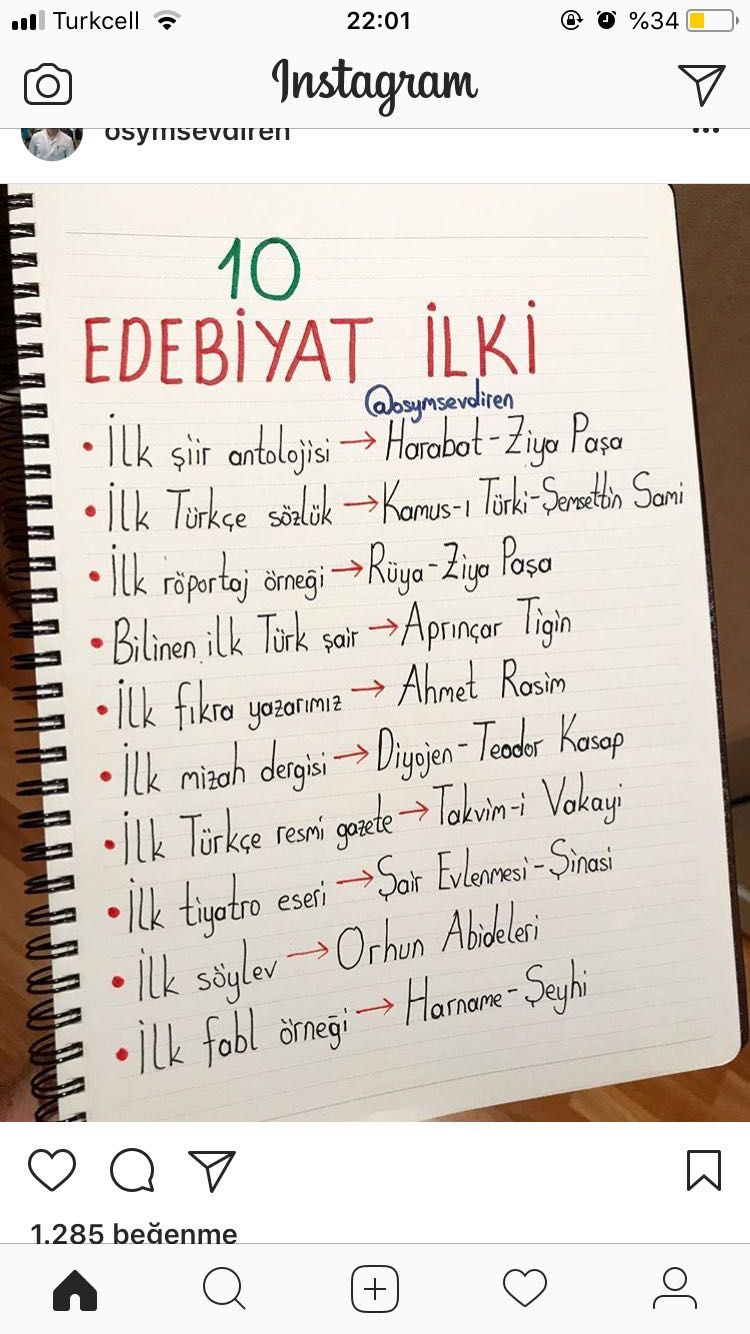 Turkcell 22:01 %34
Instagram
osymsevdiren
10
EDEBİYAT İLKİ
@osymsevdiren
• İlk şiir antolojisi → Harabat - Ziya Paşa
• İlk Türkçe sözlük → Kamus-ı Türki - Şemsettin Sami
• İlk röportaj örneği → Rüya - Ziya Paşa
• Bilinen ilk Türk şair → Aprınçar Tigin
• İlk fıkra yazarımız → Ahmet Rasim
• İlk mizah dergisi → Diyojen - Teodor Kasap
• İlk Türkçe resmi gazete → Takvim-i Vakayi
• İlk tiyatro eseri → Şair Evlenmesi - Şinasi
• İlk söylev → Orhun Abideleri
• İlk fabl örneği → Harname - Şeyhi
1.285 beğenme